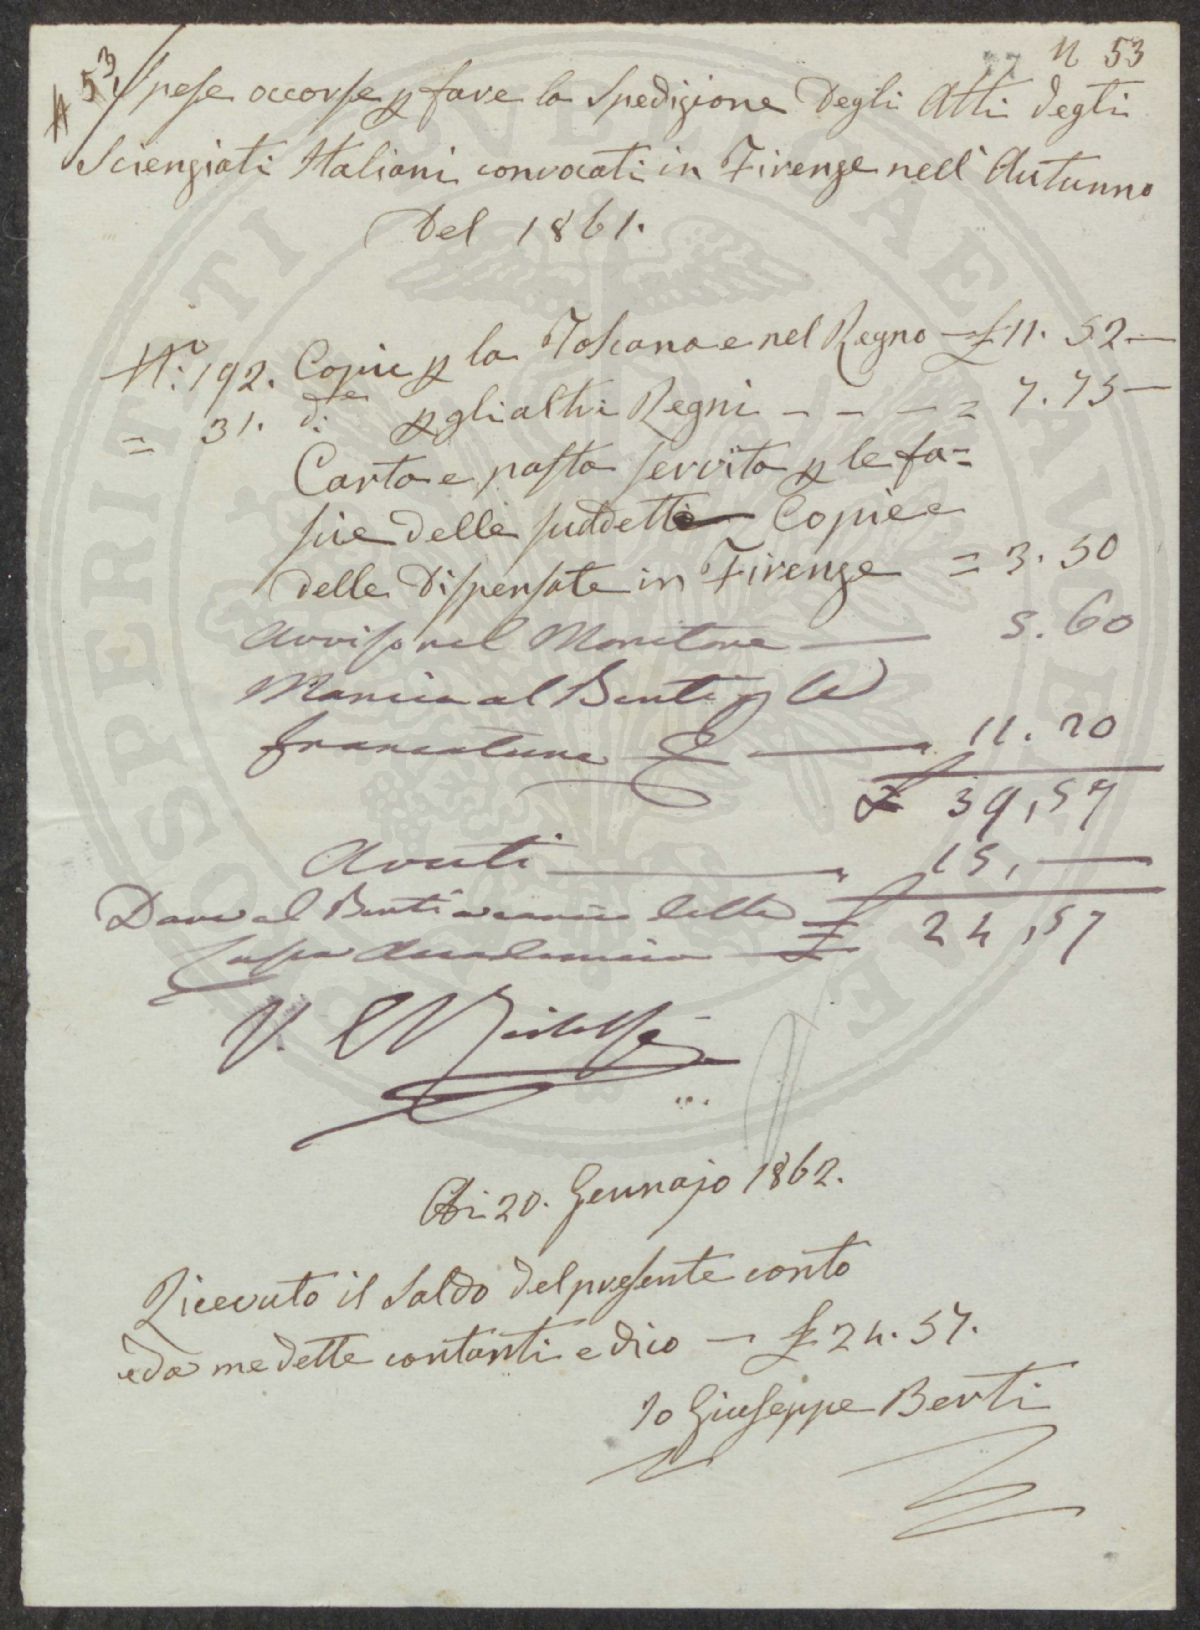 N 53
N 53
Spese occorse p fare la Spedizione degli Atti degli
Scienziati Italiani convocati in Firenze nell'Autunno
del 1861.
N.° 192. Copie p la Toscana e nel Regno — £ 11. 52 —
= 31. d.e p gli altri Regni - - - = 7. 75 —
Carta e pasta servita p le fa=
sie delle suddette Copie e
delle dispensate in Firenze = 3. 50
Avviso nel Monitore — 5. 60
Mancia al Berti p le
francature — 11. 20
£ 39,57
Avuti — „ 15, —
Dare al Berti a carico della £ 24,57
Cassa Accademica
V. C Ridolfi
A dì 20. Gennajo 1862.
Ricevuto il Saldo del presente conto
e da me dette contanti e dico — £ 24. 57.
Io Giuseppe Berti
PROSPERITATI PUBLICAE AUGENDAE